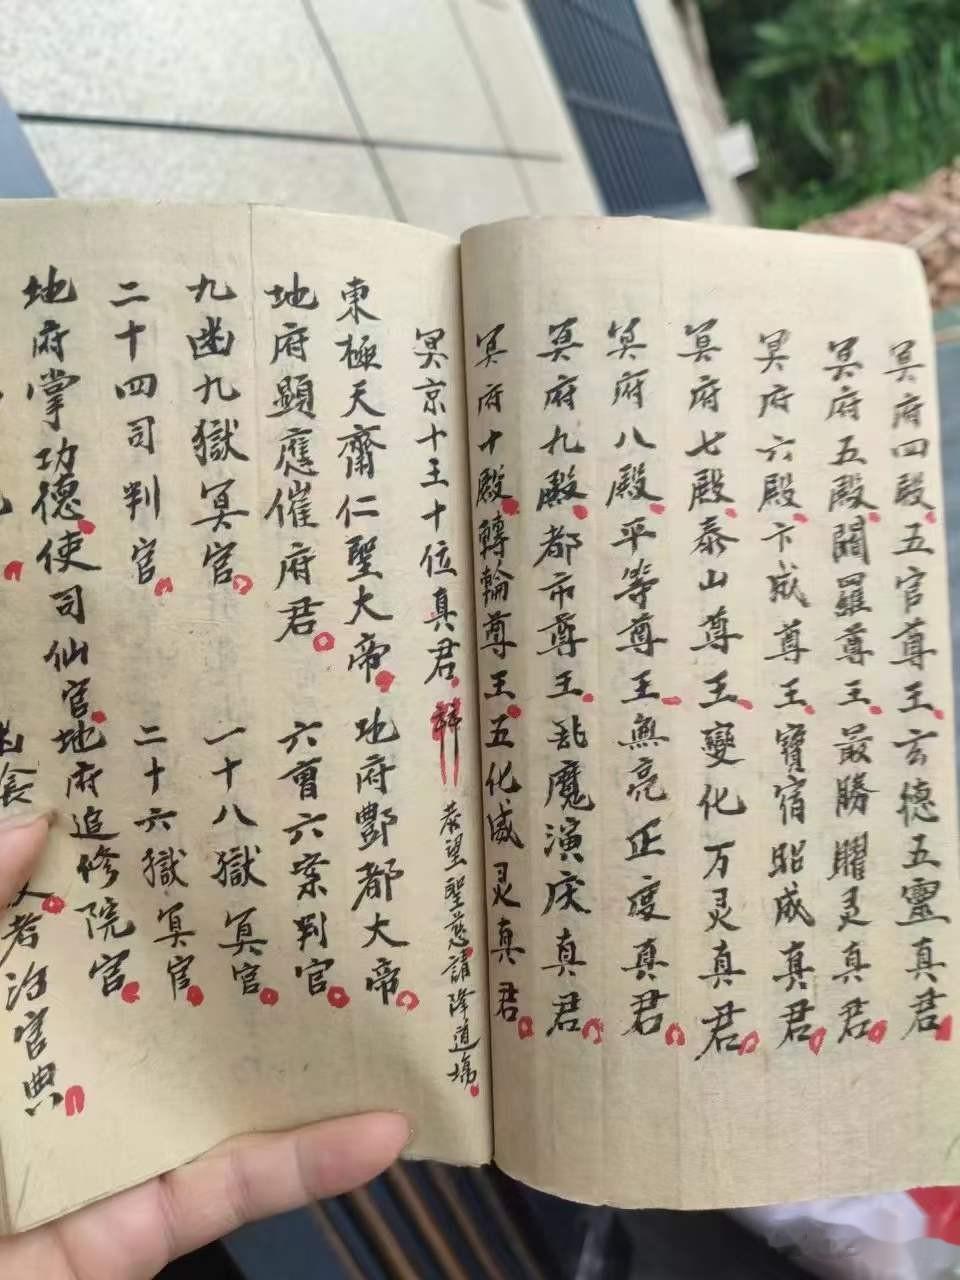 冥府四殿五官尊王玄德五靈真君
冥府五殿閻羅尊王最勝耀灵真君
冥府六殿卞成尊王寶宿昭成真君
冥府七殿泰山尊王變化万灵真君
冥府八殿平等尊王無亮正度真君
冥府九殿都市尊王飛魔演庆真君
冥府十殿轉輪尊王五化威灵真君
冥京十王十位真君 恭望聖慈請降道場
東極天齋仁聖大帝 地府酆都大帝
地府顯應催府君 六曹六案判官
九幽九獄冥官 一十八獄冥官
二十四司判官 二十六獄冥官
地府掌功德使司仙官 地府追修院官